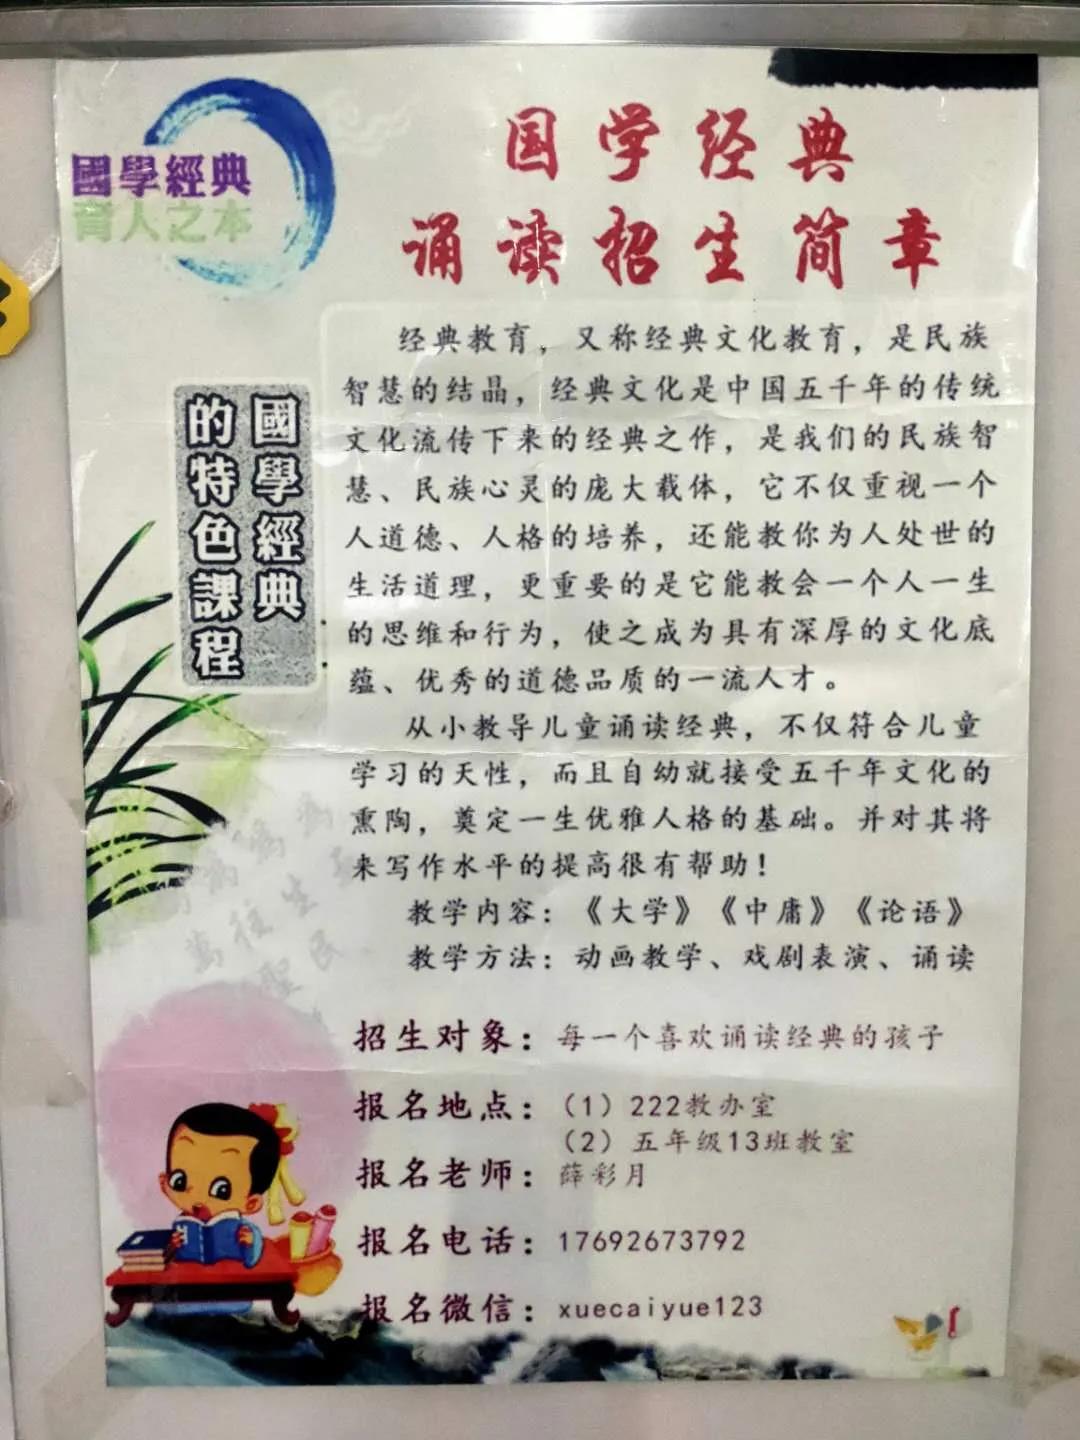 國學經典
育人之本
国学经典
诵读招生简章
國學經典
的特色課程
经典教育，又称经典文化教育，是民族
智慧的结晶，经典文化是中国五千年的传统
文化流传下来的经典之作，是我们的民族智
慧、民族心灵的庞大载体，它不仅重视一个
人道德、人格的培养，还能教你为人处世的
生活道理，更重要的是它能教会一个人一生
的思维和行为，使之成为具有深厚的文化底
蕴、优秀的道德品质的一流人才。
从小教导儿童诵读经典，不仅符合儿童
学习的天性，而且自幼就接受五千年文化的
熏陶，奠定一生优雅人格的基础。并对其将
来写作水平的提高很有帮助！
教学内容：《大学》《中庸》《论语》
教学方法：动画教学、戏剧表演、诵读
招生对象：每一个喜欢诵读经典的孩子
报名地点：（1）222教办室
（2）五年级13班教室
报名老师：薛彩月
报名电话：17692673792
报名微信：xuecaiyue123